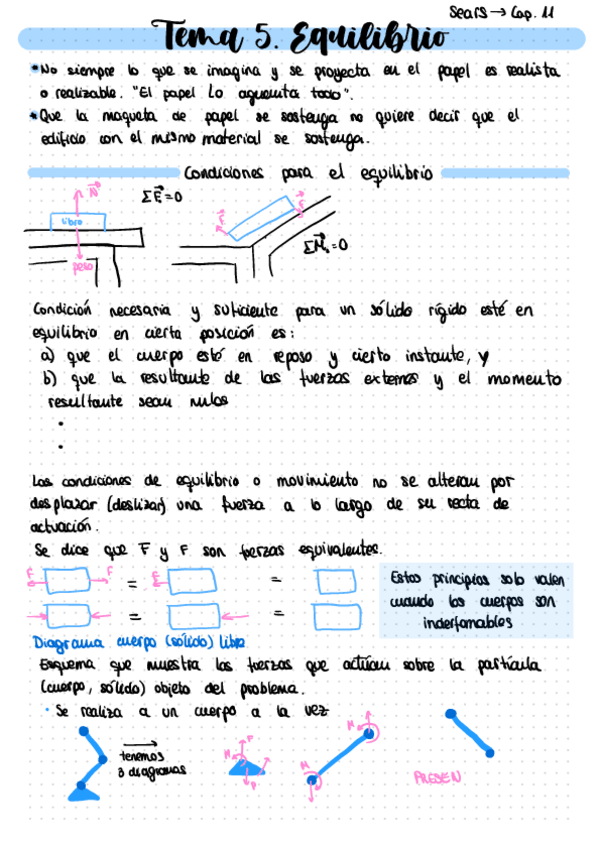 Sears → Cap. 11
Tema 5. Equilibrio
* No siempre lo que se imagina y se proyecta en el papel es realista
o realizable. "El papel lo aguenta todo".
* Que la maqueta de papel se sostenga no quiere decir que el
edificio con el mismo material se sostenga.
Condiciones para el equilibrio
N
ΣF=0
libro
peso
F
F
ΣM=0
Condición necesaria y suficiente para un sólido rígido esté en
equilibrio en cierta posición es:
a) que el cuerpo esté en reposo y cierto instante, y
b) que la resultante de las fuerzas externas y el momento
resultante sean nulos
Las condiciones de equilibrio o movimiento no se alteran por
desplazar (deslizar) una fuerza a lo largo de su recta de
actuación.
Se dice que F y F son fuerzas equivalentes.
F F = F = 
= =
Estos principios solo valen
cuando los cuerpos son
indeformables
Diagrama cuerpo (sólido) libre
Esquema que muestra las fuerzas que actúan sobre la partícula
(cuerpo, sólido) objeto del problema.
· Se realiza a un cuerpo a la vez
tenemos
3 diagramas
M F
P
M
M
PRESEN